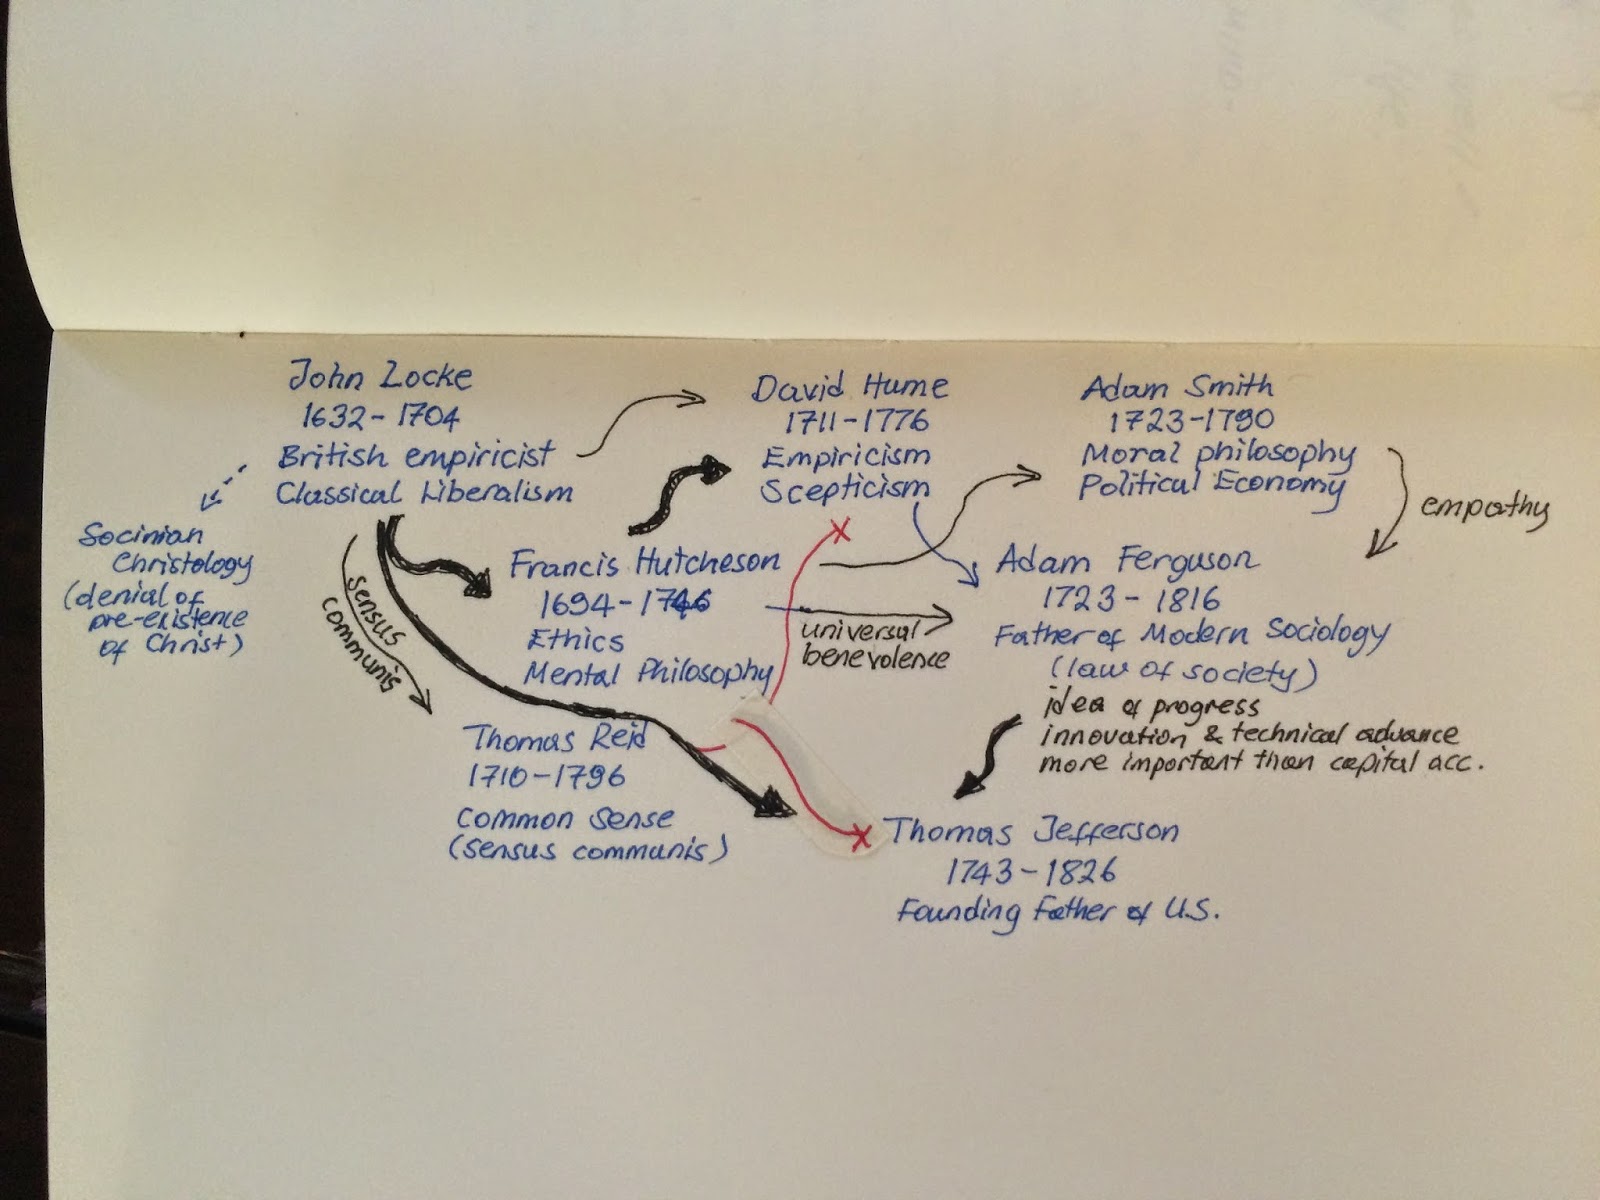 John Locke
1632-1704
British empiricist
Classical Liberalism
Socinian
Christology
(denial of
pre-existence
of Christ)
sensus
communis
David Hume
1711-1776
Empiricism
Scepticism
Adam Smith
1723-1790
Moral philosophy
Political Economy
empathy
Francis Hutcheson
1694-1746
Ethics
Mental Philosophy
universal
benevolence
Adam Ferguson
1723-1816
Father of Modern Sociology
(law of society)
idea of progress
innovation & technical advance
more important than capital acc.
Thomas Reid
1710-1796
Common Sense
(sensus communis)
Thomas Jefferson
1743-1826
Founding Father of U.S.